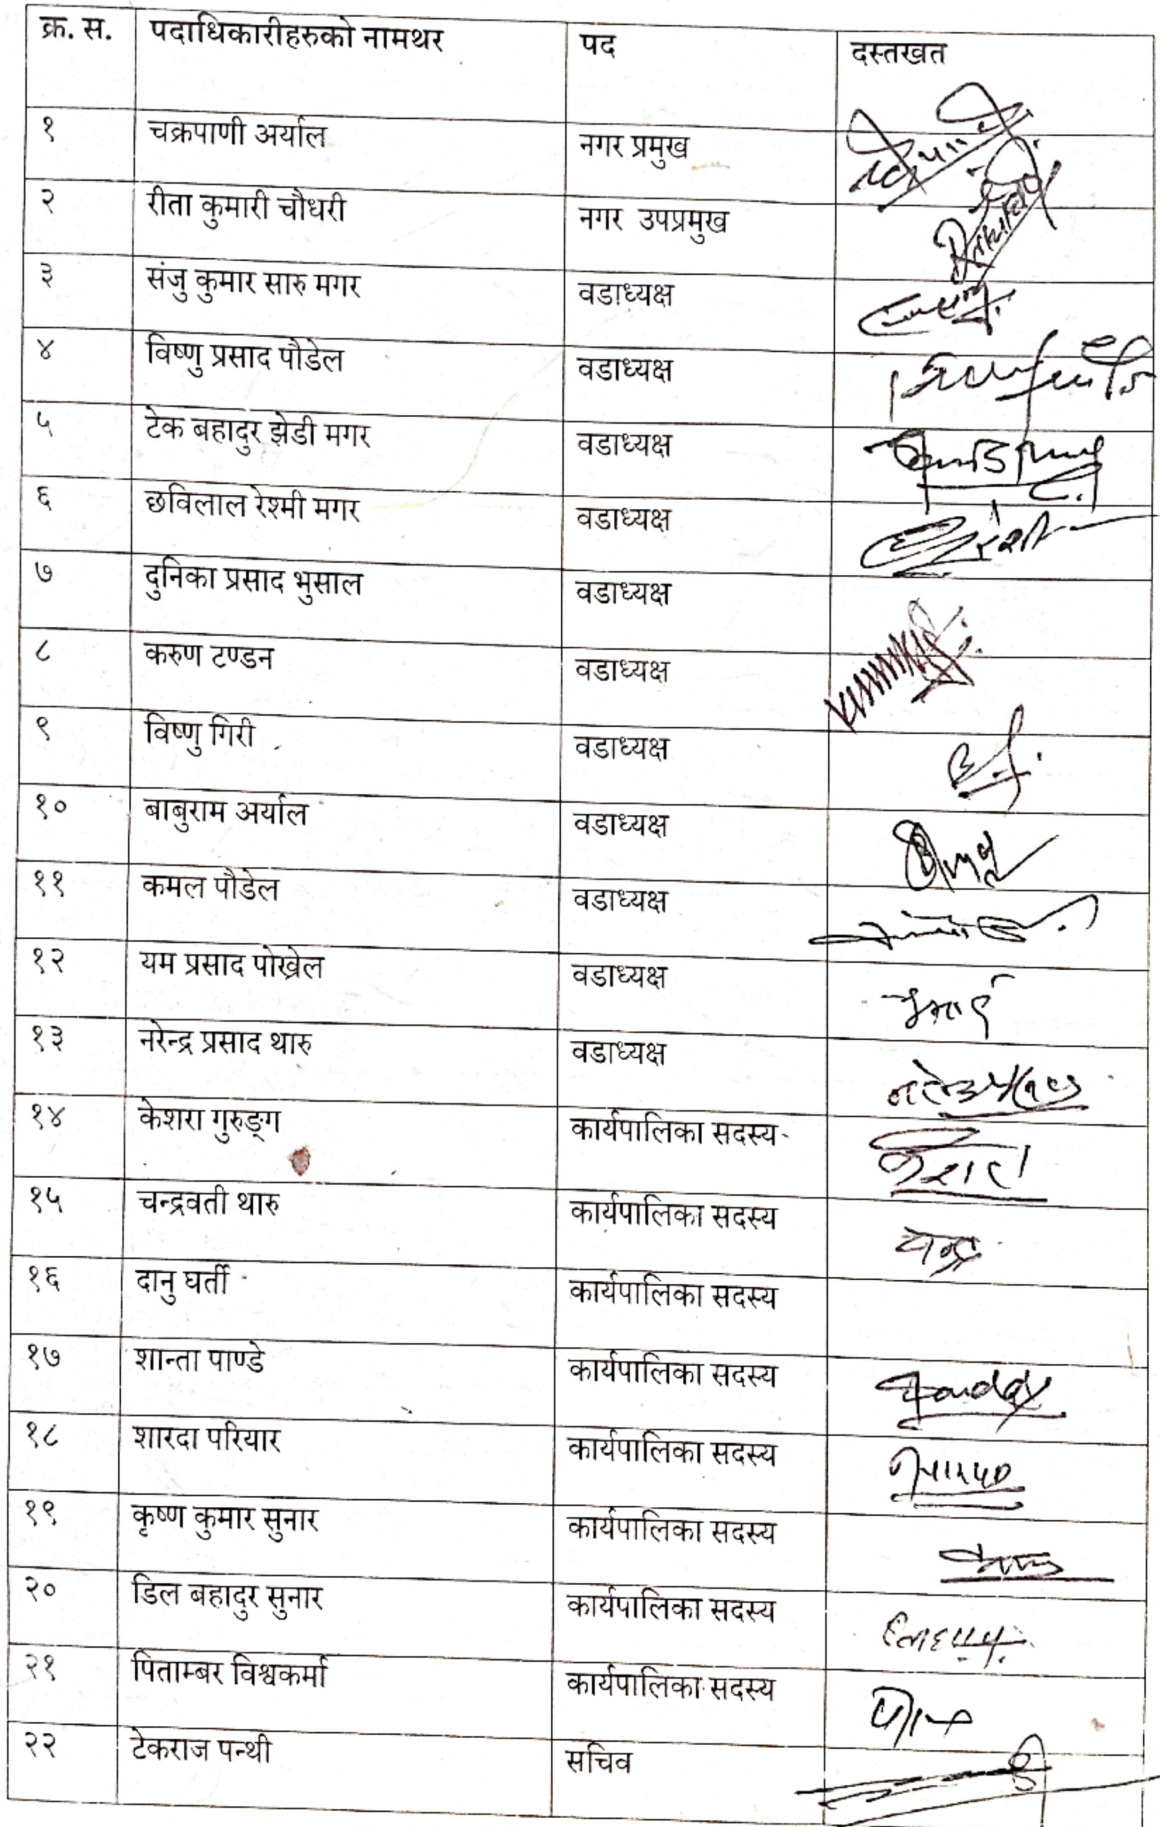 क्र. स. पदाधिकारीहरुको नामथर पद दस्तखत
१ चक्रपाणी अर्याल नगर प्रमुख
२ रीता कुमारी चौधरी नगर उपप्रमुख
३ संजु कुमार सारु मगर वडाध्यक्ष
४ विष्णु प्रसाद पौडेल वडाध्यक्ष
५ टेक बहादुर झेडी मगर वडाध्यक्ष
६ छविलाल रेश्मी मगर वडाध्यक्ष
७ दुनिका प्रसाद भुसाल वडाध्यक्ष
८ करुण टण्डन वडाध्यक्ष
९ विष्णु गिरी वडाध्यक्ष
१० बाबुराम अर्याल वडाध्यक्ष
११ कमल पौडेल वडाध्यक्ष
१२ यम प्रसाद पोख्रेल वडाध्यक्ष
१३ नरेन्द्र प्रसाद थारु वडाध्यक्ष
१४ केशरा गुरुङ्ग कार्यपालिका सदस्य केशरा
१५ चन्द्रवती थारु कार्यपालिका सदस्य चन्द्र
१६ दानु घर्ती कार्यपालिका सदस्य
१७ शान्ता पाण्डे कार्यपालिका सदस्य
१८ शारदा परियार कार्यपालिका सदस्य
१९ कृष्ण कुमार सुनार कार्यपालिका सदस्य
२० डिल बहादुर सुनार कार्यपालिका सदस्य
२१ पिताम्बर विश्वकर्मा कार्यपालिका सदस्य
२२ टेकराज पन्थी सचिव